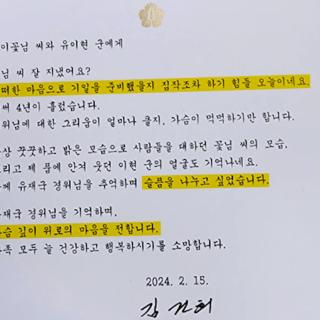 이꽃님 씨와 유이현 군에게
님 씨 잘 지냈어요?
떠한 마음으로 기일을 준비했을지 짐작조차 하기 힘든 오늘이네요.
써 4년이 흘렀습니다.
위님에 대한 그리움이 얼마나 클지, 가슴이 먹먹하기만 합니다.
상 꿋꿋하고 밝은 모습으로 사람들을 대하던 꽃님 씨의 모습,
리고 제 품에 안겨 웃던 이현 군의 얼굴도 기억나네요.
께 유재국 경위님을 추억하며 슬픔을 나누고 싶었습니다.
재국 경위님을 기억하며,
슴 깊이 위로의 마음을 전합니다.
족 모두 늘 건강하고 행복하시기를 소망합니다.
2024. 2. 15.
김건희